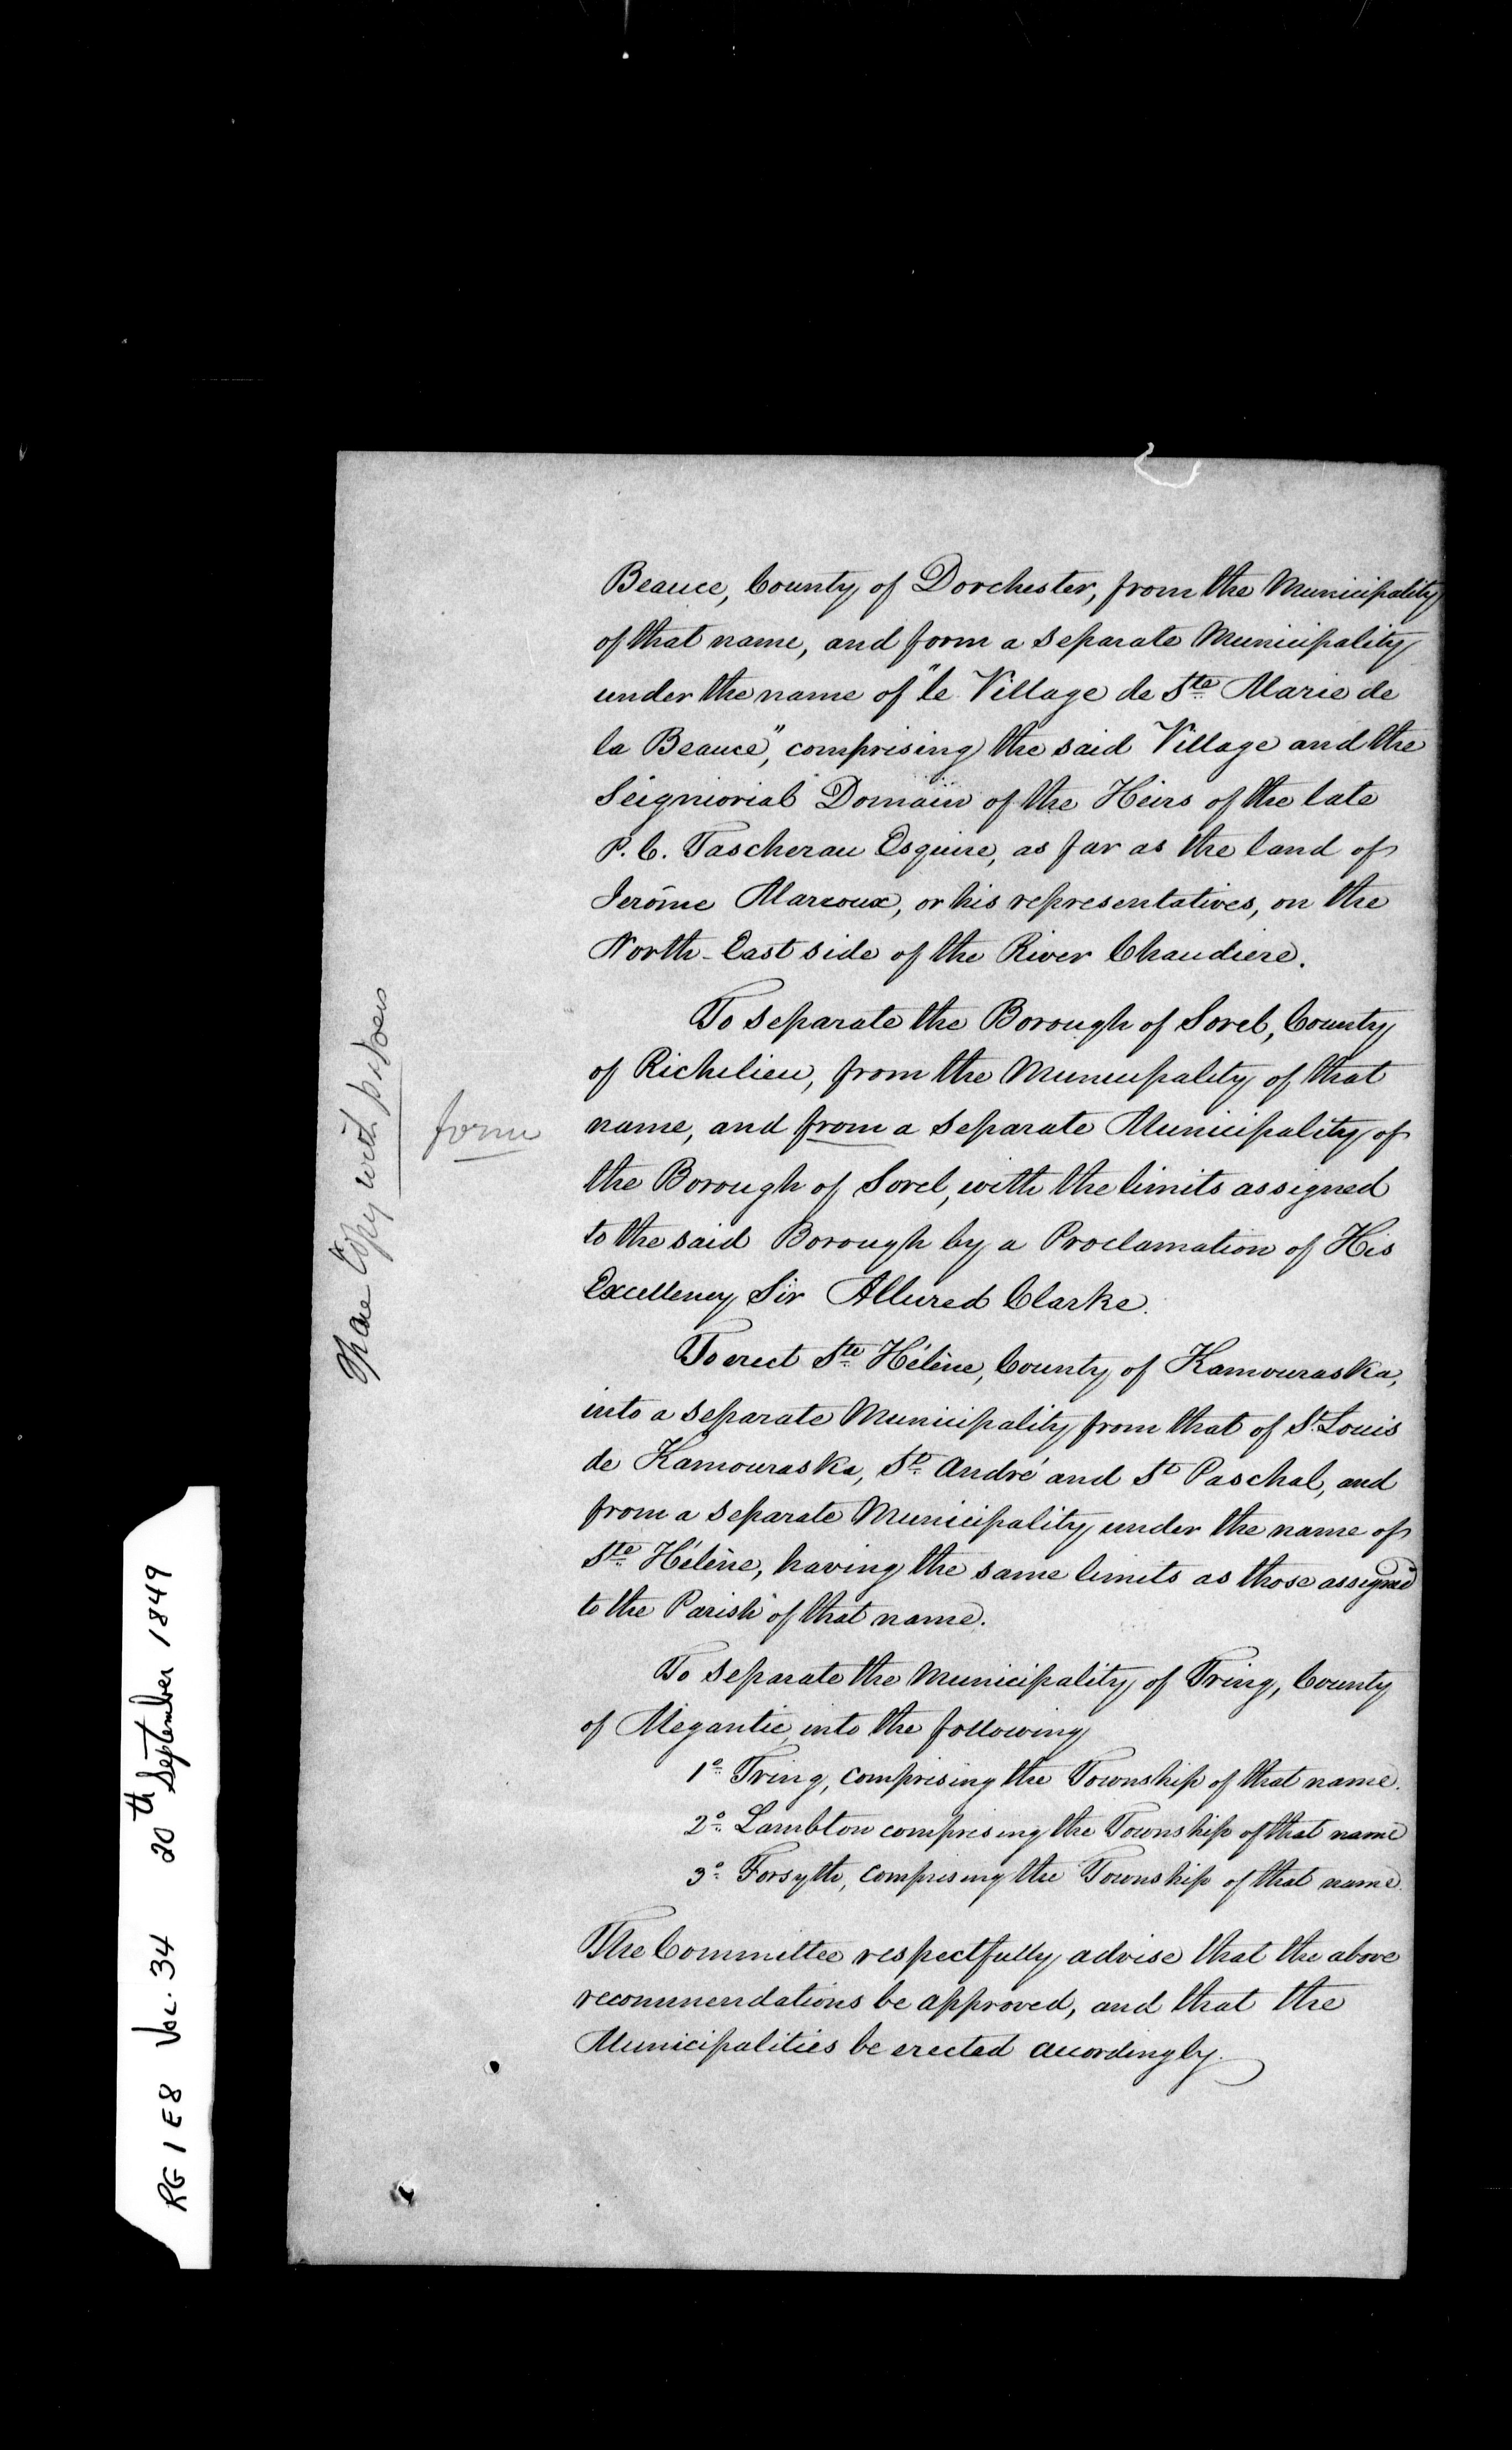 Beauce, County of Dorchester, from the Municipality
of that name, and form a separate Municipality
under the name of "le Village de Ste Marie de
la Beauce", comprising the said Village and the
Seigniorial Domain of the Heirs of the late
P. C. Tascherau Esquire, as far as the land of
Jerôme Marcoux, or his representatives, on the
North-East side of the River Chaudiere.
To separate the Borough of Sorel, County
of Richelieu, from the Municipality of that
form
name, and from a separate Municipality of
the Borough of Sorel, with the limits assigned
to the said Borough by a Proclamation of His
Excellency Sir Allured Clarke.
To erect Ste Hélène, County of Kamouraska,
into a separate Municipality from that of St Louis
de Kamouraska, St André and St Paschal, and
from a separate Municipality under the name of
Ste Hélène, having the same limits as those assigned
to the Parish of that name.
To separate the Municipality of Tring, County
of Megantic, into the following
1º Tring, comprising the Township of that name.
2º Lambton comprising the Township of that name
3º Forsyth, comprising the Township of that name.
The Committee respectfully advise that the above
recommendations be approved, and that the
Municipalities be erected accordingly.
Copy with
RG 1 E8 Vol. 34 20th September 1849